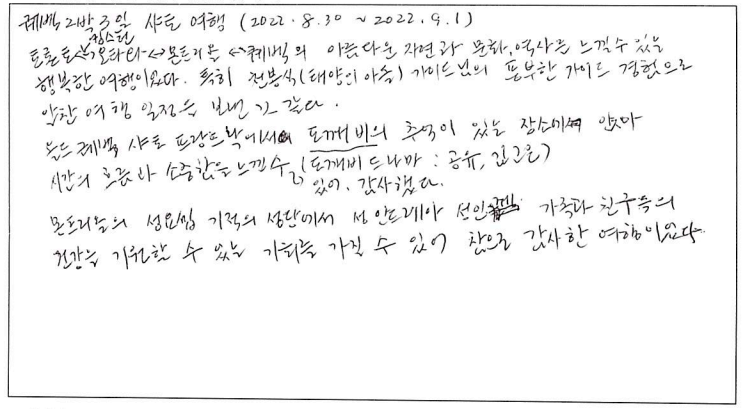 퀘벡 2박 3일 샤토 여행 (2022.8.30 ~ 2022.9.1)
킹스턴
토론토↔오타와↔몬트리올↔퀘벡의 아름다운 자연과 문화,역사를 느낄수 있는
행복한 여행이었다. 특히 전봉식(태양의 아들) 가이드님의 풍부한 가이드 경험으로
알찬 여행 일정을 보낸 것 같다.
올드퀘벡 샤토 프랑트낙에서 도깨비의 추억이 있는 장소에 앉아
시간의 흐름과 소중함을 느낄수 (도깨비드라마 : 공유, 김고은)
있어. 감사했다.
몬트리올의 성요셉 기적의 성당에서 성 안드레아 성인 가족과 친구들의
건강을 기원할 수 있는 기회를 가질 수 있어 참으로 감사한 여행이었다.